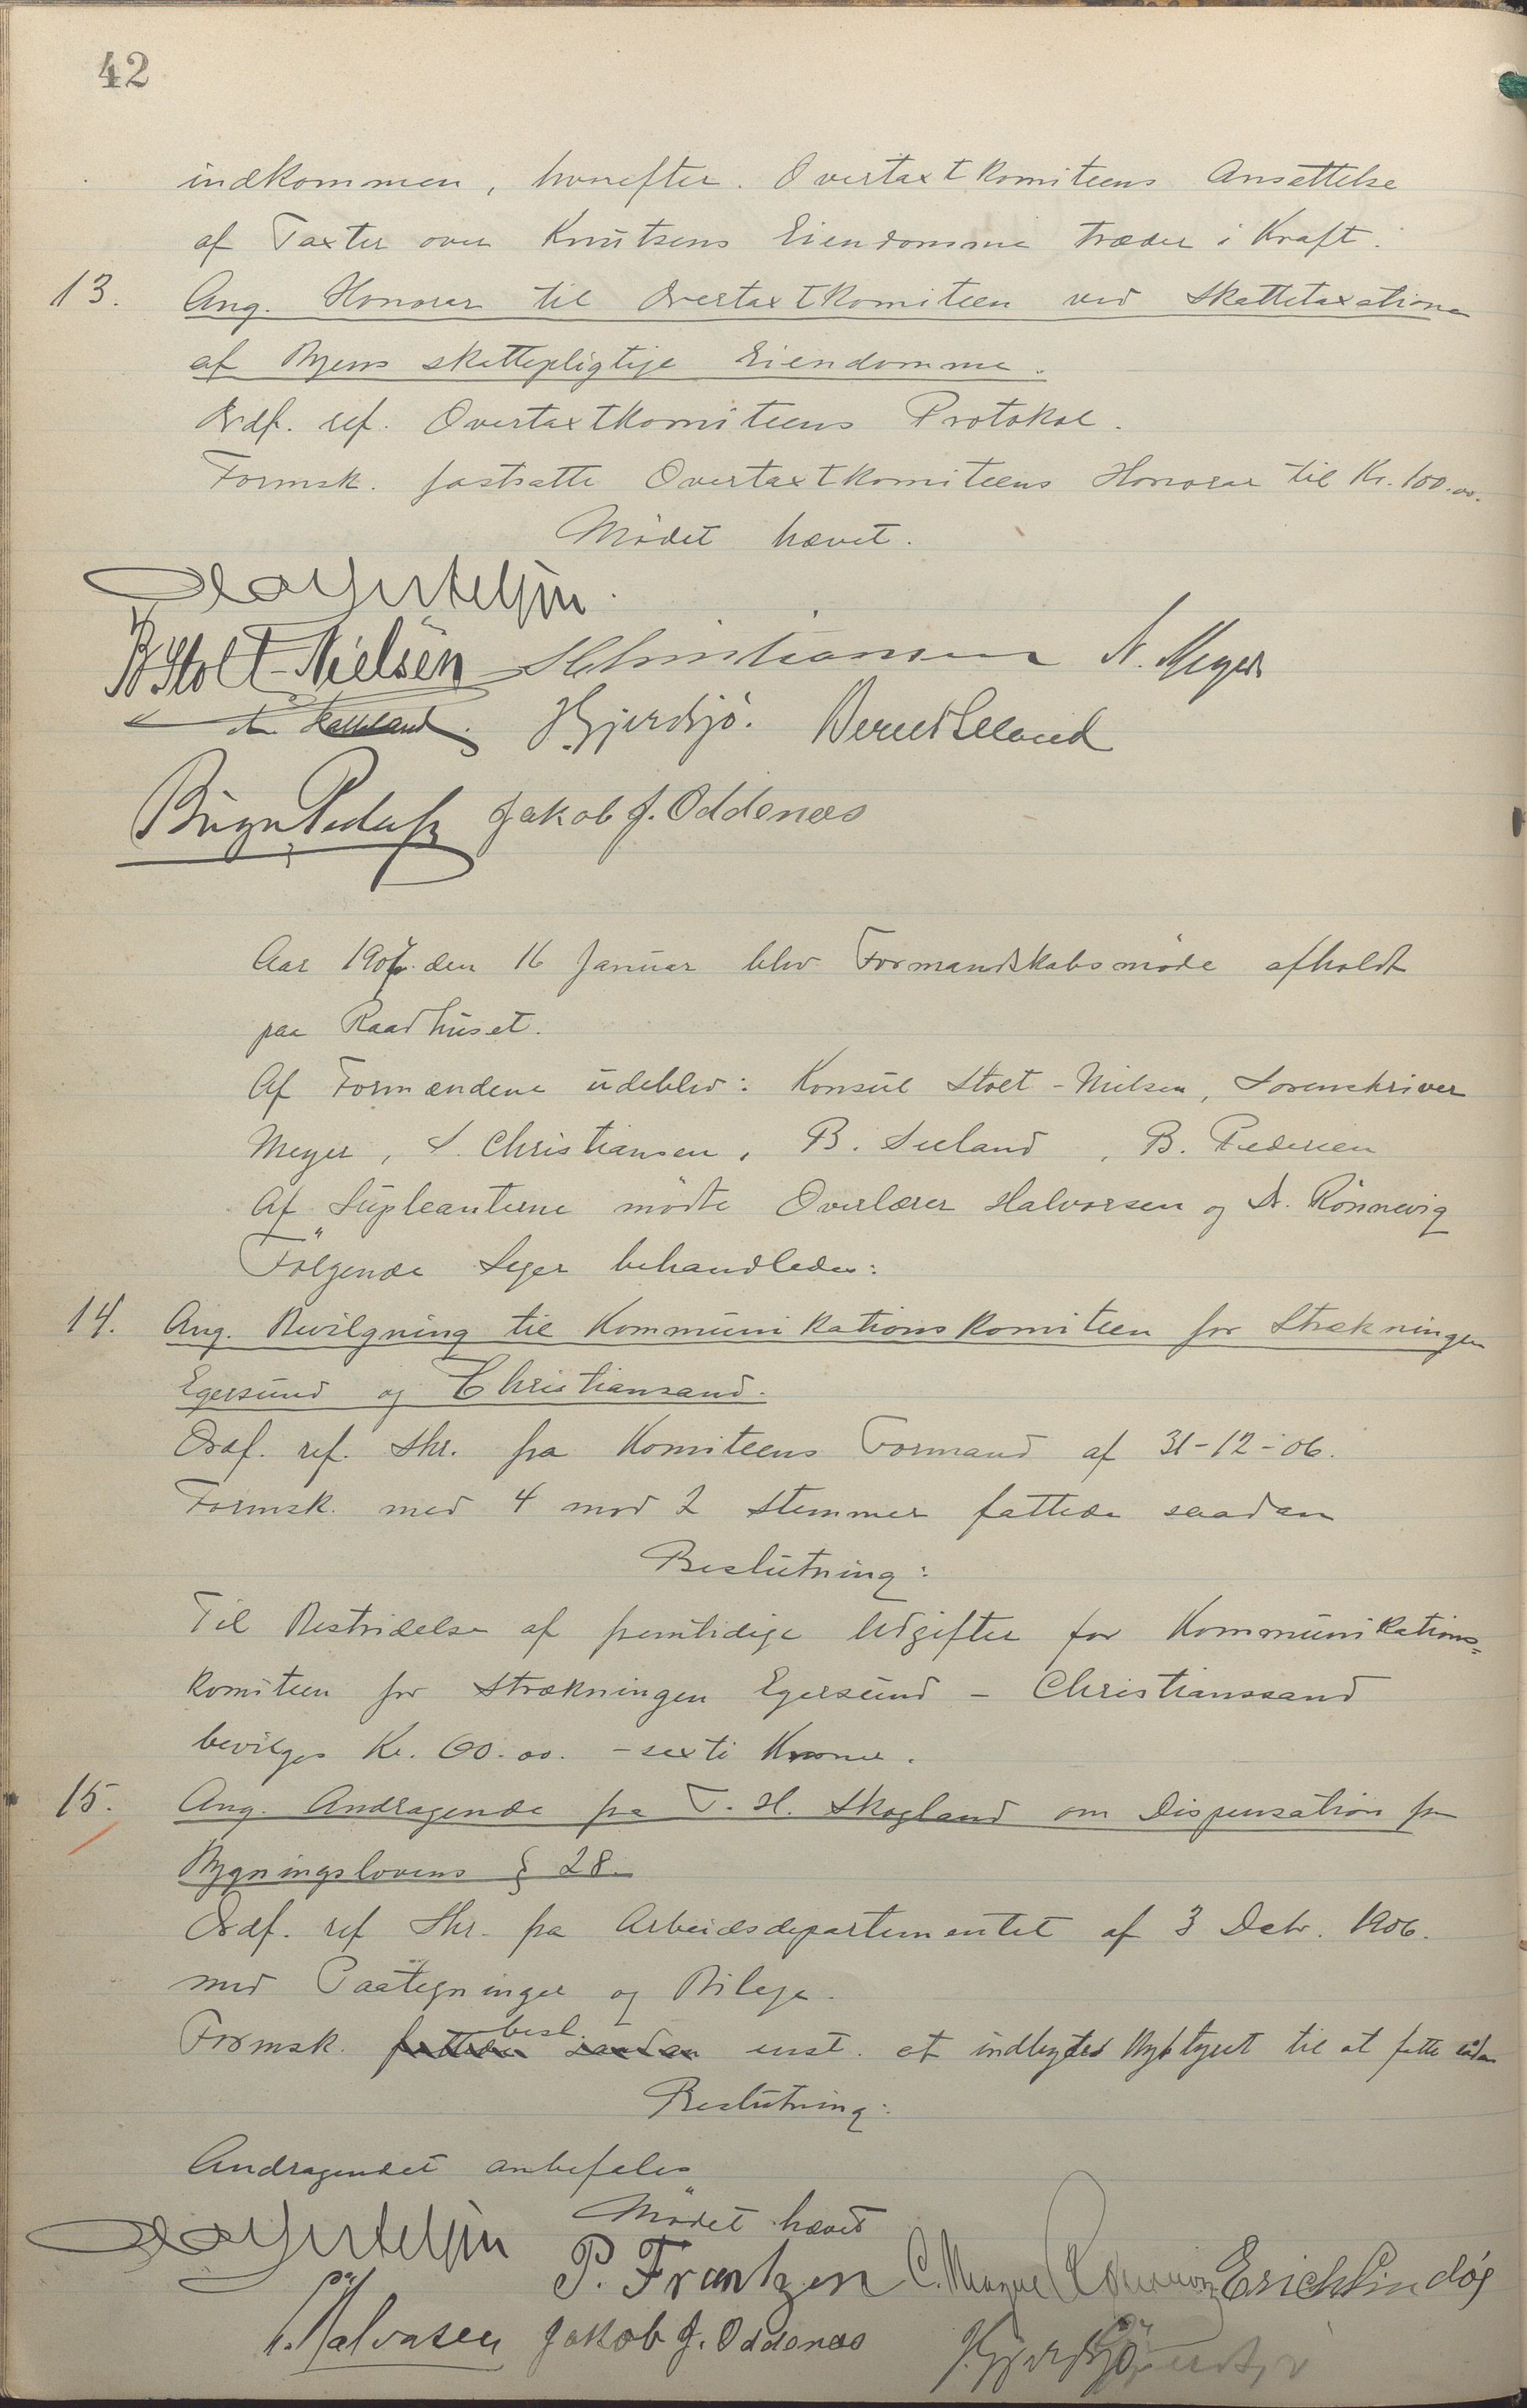 42
indkommen, hvorefter Overtaxtkomiteens Ansettelse
af Taxter over Knutsens Eiendomme træder i Kraft.
13. Ang. Honorar til Overtaxtkomiteen ved Skattetaxationen
af Byens skattepligtige Eiendomme.
Ordf. ref. Overtaxtkomiteens Protokol.
Formsk. fastsatte Overtaxtkomiteens Honorar til Kr. 100.00.
Mødet hævet.
B Stolt-Nielsen S Christiansen N. Meyer
J Gjerdsjø. Bernt Seland
Birger Pedersen Jakob J. Oddenæs
Aar 1907 den 16 Januar blev Formandskabsmøde afholdt
paa Raadhuset.
Af Formændene udeblev: Konsul Stolt-Nielsen, Sorenskriver
Meyer, S. Christiansen, B. Seeland, B. Pedersen
Af Supleanterne mødte Overlærer Halvorsen og Dr. Rønnevig
Følgende Sager behandledes:
14. Ang. Bevilgning til Kommunikationskomiteen for Strækningen
Egersund og Christiansand.
Ordf. ref. Skr. fra Komiteens Formand af 31-12-06.
Formsk. med 4 mod 2 Stemmer fattede saadan
Beslutning:
Til Bestridelse af fremtidige Udgifter for Kommunikations=
komiteen for Strækningen Egersund - Christianssand
bevilges Kr. 60.00. - sexti Kroner.
15. Ang. Andragende fra T. H. Skogland om Dispensation fra
Bygningslovens § 28.
Ordf. ref Skr. fra Arbeidsdepartementet af 3 Debr. 1906.
med Paategninger og Bilage.
Formsk. fattede saadan besl. enst. at indbyde Bystyret til at fatte sådan
Beslutning:
Andragendet anbefales
Mødet hævet
P. Frantzen C. Magne Rønnevig Erich Lindøe
Halvorsen Jakob J. Oddenæs J. Gjerdsjø